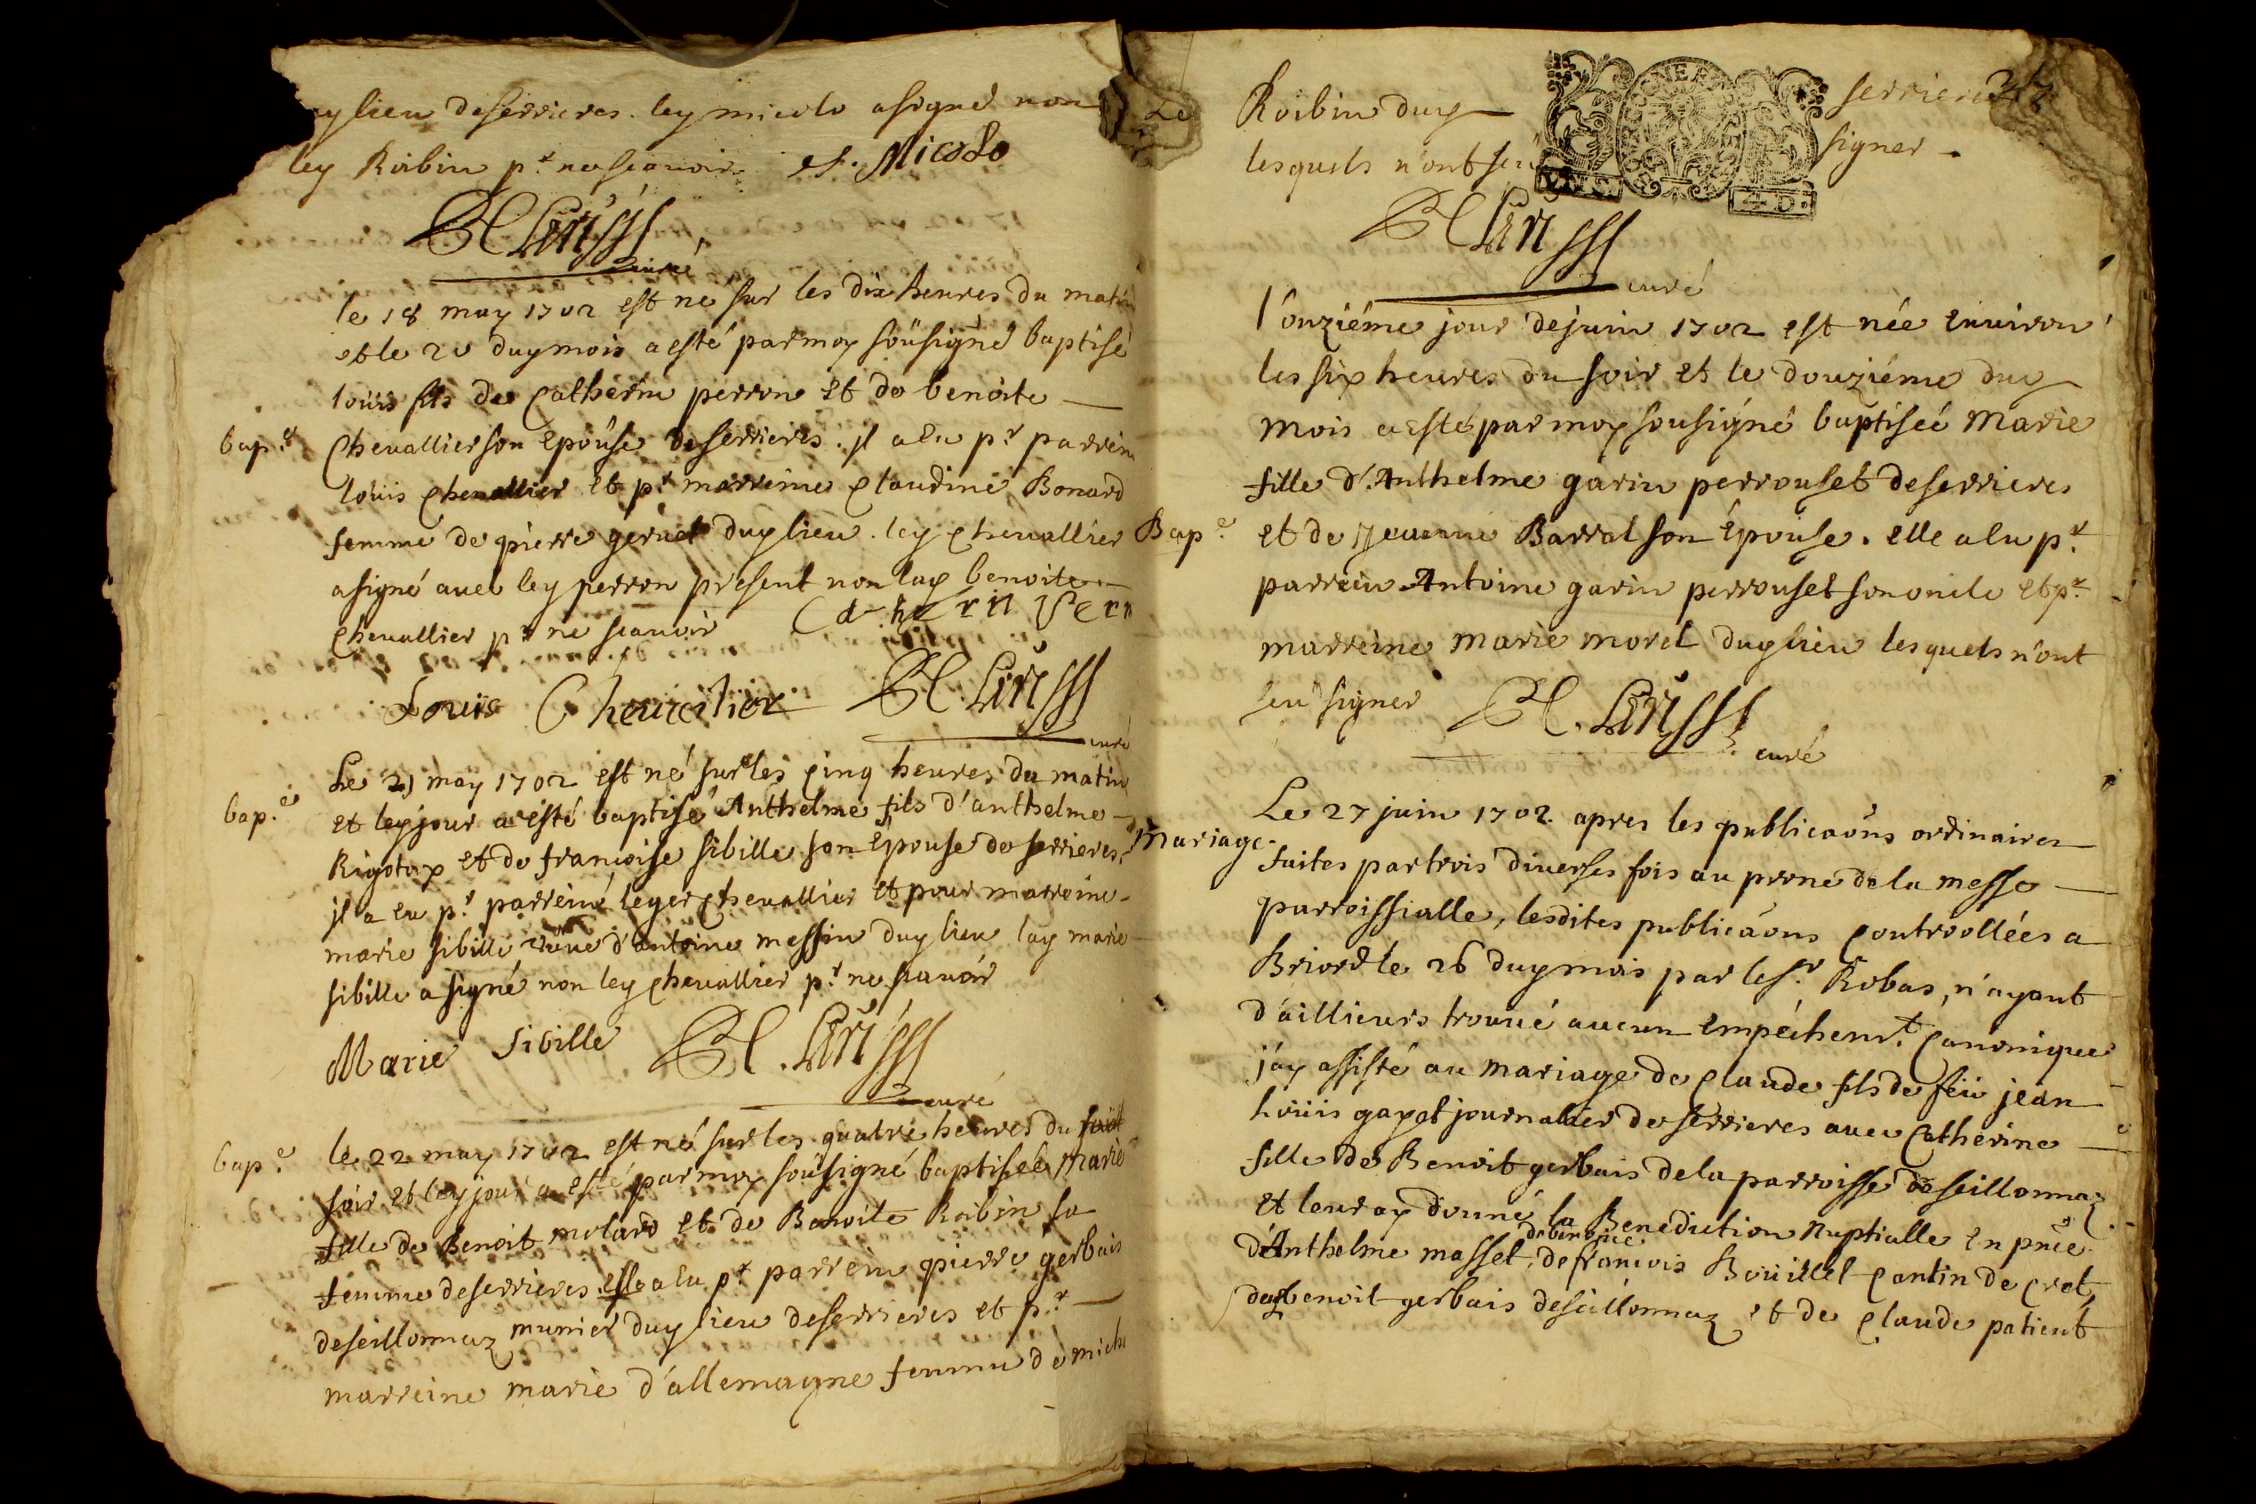 lieu deserrieres. ley micolo asigné non
ley Robin pr. nescauoir
Micolo
curé
le 18 may 1702 est né sur les dix heures du matin
et le 20 duy mois a esté par moy soûsigné baptisé
loüis fils de Catherin perron et de benoite
bap.e Chevallier son Epouse deserrieres. jl a eu pr. parrein
loüis chevallier et pr. marreine claudine Bonard
femme de pierre gernet duy lieu. ley chevallier
asigné avec ley perron present non lay benoite
chevallier pr. ne scauoir Catherin Perr
Louis Cheuailier
curé
Le 21 may 1702 est né sur les cinq heures du matin
bap.e et ley jour a esté baptisé Anthelme fils d'anthelme
Rigotax et de francoise sibille son Epouse de serrieres.
jl a eu pr. parreine leger chevallier et pour marreine
marie sibille d'antoine messin duy lieu lay marie
sibille a signé non ley chevallier pr. ne scauoir
Marie Sibille
curé
bap.e le 22 may 1702 est né sur les quatre heures du
soir et ley jour a esté par moy soûsigné baptisée Marie
fille de Benoit molard et de Benoite Robin sa
femme deserrieres. elle a eu pr. parrein pierre gerbais
deseillonnaz munier duy lieu deserrieres et pr.
marreine marie d'allemagne femme de
Robin duy serrieres
lesquels n'ont signer
4 D.
curé
l'onziéme jour dejuin 1702 est née Enuiron
les six heures du soir et le douziéme duy
mois a esté par moy sousigné baptiseé Marie
fille d'Anthelme garin perrouset deserrieres
Bap.e et de Barral son Epouse. elle a eu pr.
parrein Antoine garin perrouset son oncle et pr.
marreine marie morel duy lieu lesquels n'ont
seu signer
curé
Le 27 juin 1702. apres les publicaôns ordinaires
Mariage. faites par trois diuerses fois au prone de la messe
parroissialle, lesdites publicaôns controollées a
Briord le 26 duy mois par le sr. Robas, n'ayant
d'aillieurs trouué aucun Empéchemt. Canonique
j'ay assisté au mariage de claude fils de feu jean
loüis gayet journalier de serrieres auec Catherine
fille de Benoit gerbais de la parroisse de seillonnaz
et leur ay donné la Benediction Nuptialle En pnce.
d'Anthelme masset, de francois Boüillet Cantin de cret,
duy benoit gerbais deseillonnaz et de claude patient